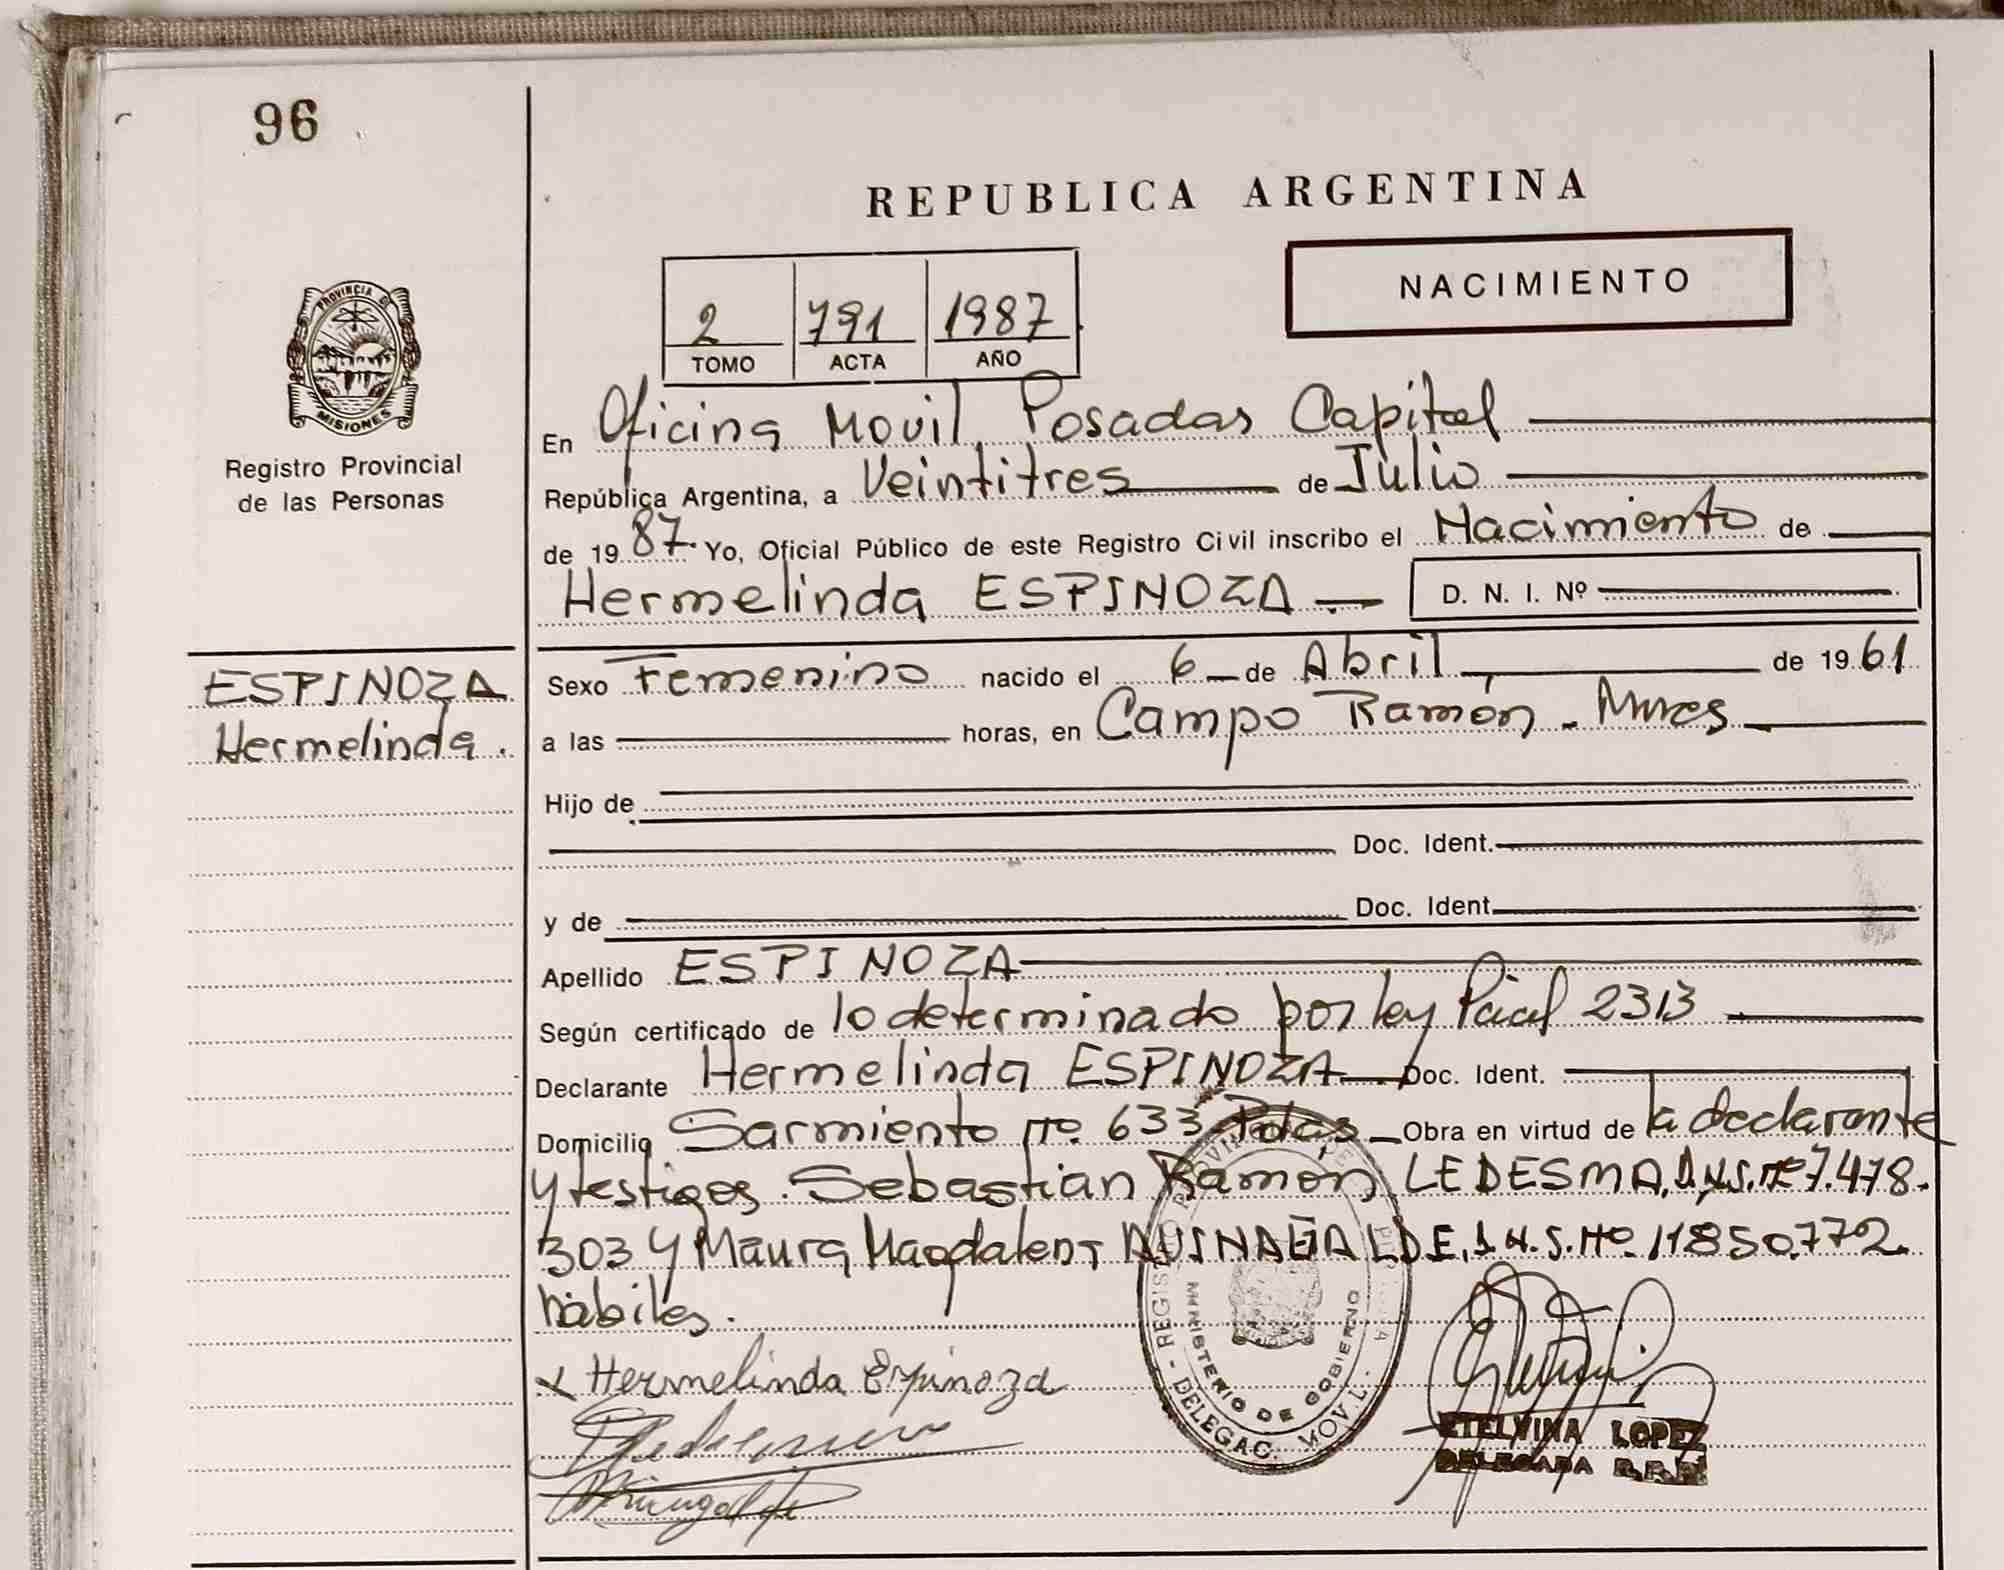 96
REPUBLICA ARGENTINA
NACIMIENTO
2 791 1987
TOMO ACTA AÑO
PROVINCIA DE
MISIONES
Registro Provincial
de las Personas
En Oficina Movil Posadas Capital
República Argentina, a Veintitres de Julio
de 19 87. Yo, Oficial Público de este Registro Civil inscribo el Nacimiento de
Hermelinda ESPINOZA D. N. I. Nº
ESPINOZA
Hermelinda.
Sexo Femenino nacido el 6 de Abril de 19 61
a las horas, en Campo Ramón - Mnes
Hijo de
Doc. Ident.
y de Doc. Ident.
Apellido ESPINOZA
Según certificado de lo determinado por ley Pcial 2313
Declarante Hermelinda ESPINOZA Doc. Ident.
Domicilio Sarmiento Nº 633 Pdas Obra en virtud de la declarante
y testigos. Sebastian Ramón LEDESMA, D.N.I. Nº 7.478.
303 y Maura Magdalena D.N.I. Nº. 11850.772
hábiles.
x Hermelinda Espinoza
MINISTERIO DE GOBIERNO
DELEGAC. MOVIL
ETELVINA LOPEZ
DELEGADA R.P.P.